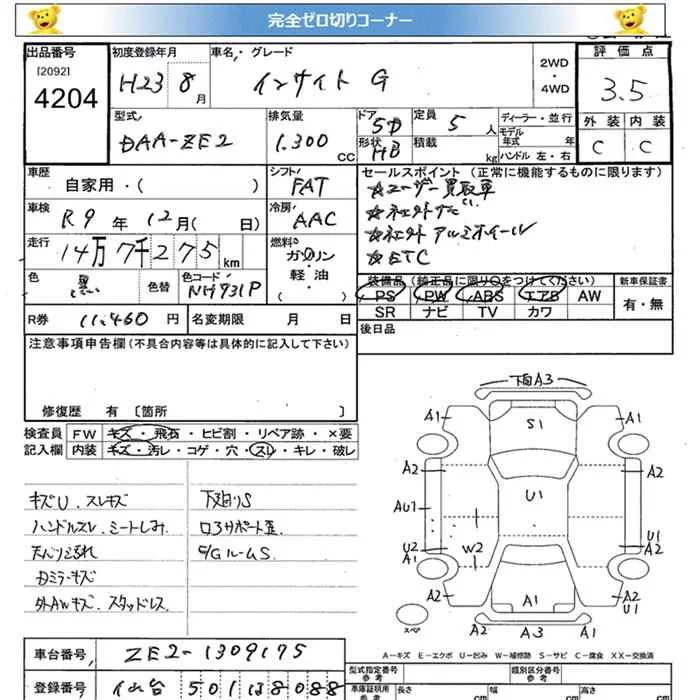 完全ゼロ切りコーナー
出品番号
[2092]
4204
初度登録年月
H23 8月
車名・グレード
インサイト G
2WD
・
4WD
評価点
3.5
外装 内装
C C
型式
DAA-ZE2
排気量
1.300 CC
ドア
5D
形状
HB
定員
5 人
積載
kg
ディーラー・並行
モデル年式 年
ハンドル 左・右
車歴
自家用・( )
シフト
FAT
車検
R9年 12月( 日)
冷房
AAC
走行
14万7千275km
燃料
ガソリン
軽・油
( )
色
黒
色替
色コード
NH731P
R券 11.460 円
名変期限 月 日
セールスポイント(正常に機能するものに限ります)
☆ユーザー買取車
☆社外ナビ
☆社外アルミホイール
☆ETC
装備品(純正品に限り○をつけてください)
PS PW ABS エアB AW
SR ナビ TV カワ
新車保証書
有・無
後日品
注意事項申告欄(不具合内容等は具体的に記入して下さい)
修復歴 有〔箇所 〕
検査員記入欄
FW キズ・飛石・ヒビ割・リペア跡・×要
内装 キズ・汚レ・コゲ・穴・スレ・キレ・破レ
キズU.スレキズ
ハンドルスレ.シートしみ
天バリ汚れ
Dミラーキズ
外AWキズ.スタッドレス
下廻りS
コアサポート歪
E/GルームS
下回A3
A1
S1
A1
A2
A2
AU1
U1
U2
A1
W2
U1
A2
A2
A1
A2
U1
A2
A3
A1
スペア
A－キズ E－エクボ U－凹み W－補修跡 S－サビ C－腐食 XX－交換済
車台番号
ZE2-1309175
登録番号
仙台 501 ほ 8088
型式指定番号
参考
類別区分番号
参考
車庫証明用
参考
長さ cm
幅 cm
高さ cm